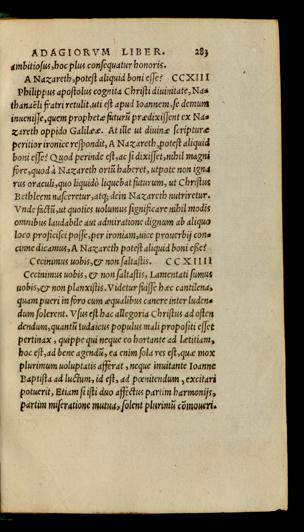 ADAGIORVM LIBER. 283
ambitiosus, hoc plus consequatur honoris.
A Nazareth, potest aliquid boni esse? CCXIII
Philippus apostolus cognita Christi diuinitate, Na-
thanaëli fratri retulit. uti est apud Ioannem, se demum
inuenisse, quem prophetæ futurū prædixissent ex Na-
zareth oppido Galileæ. At ille ut diuinæ scripturæ
peritior ironice respōdit, A Nazareth, potest aliquid
boni esse? Quod perinde est, ac si dixisset, nihil magni
fore, quod à Nazareth ortū haberet, utpote non igna
rus oraculi, quo liquidò liquebat futurum, ut Christus
Bethleem nasceretur, atq; dein Nazareth nutriretur.
Vnde factū, ut quoties uolumus significare nihil modis
omnibus laudabile aut admiratione dignum ab aliquo
loco proficisci posse, per ironiam, uice prouerbij con-
cinne dicamus, A Nazareth potest aliquid boni esse?
Cecinimus uobis, & non saltastis. CCXIIII
Cecinimus uobis, & non saltastis, Lamentati sumus
uobis, & non planxistis. Videtur fuisse hæc cantilena,
quam pueri in foro cum æqualibus canere inter luden-
dum solerent. Vsus est hac allegoria Christus ad osten
dendum, quantū Iudaicus populus mali propositi esset
pertinax, quippe qui neque eo hortante ad letitiam,
hoc est, ad bene agendū, ea enim sola res est, quæ mox
plurimum uoluptatis afferat, neque inuitante Ioanne
Baptista ad luctum, id est, ad pœnitendum, excitari
potuerit, Etiam si isti duo affectus partim harmonijs,
partim miseratione mutua, solent plurimū cōmoueri.